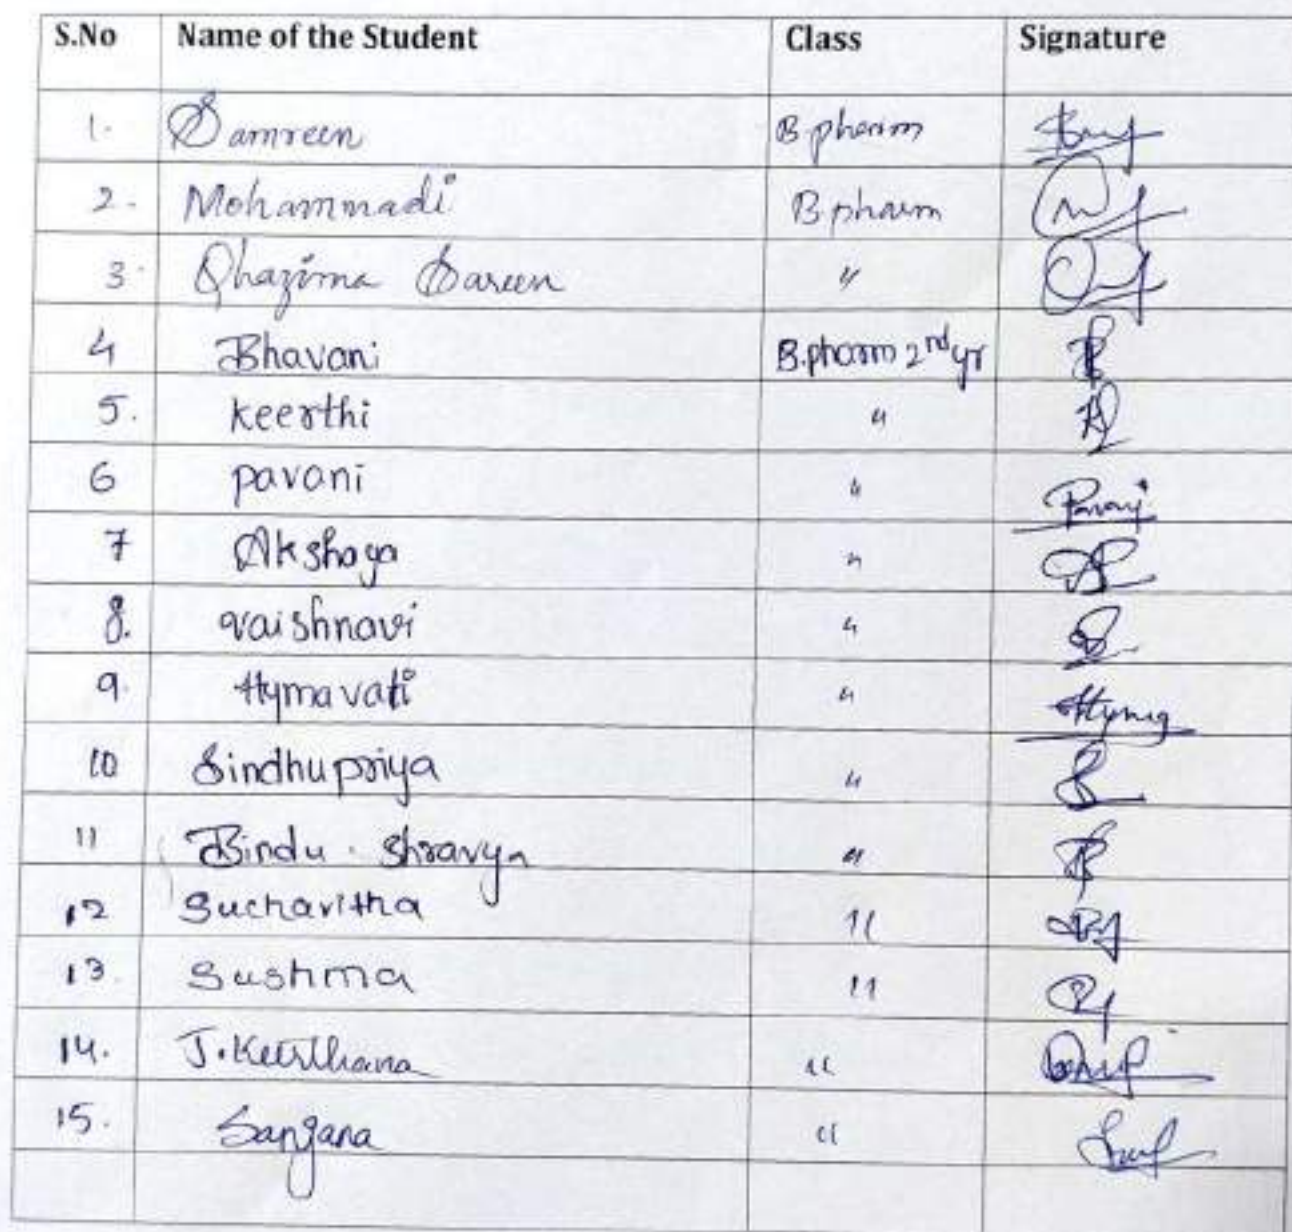 S.No Name of the Student Class Signature
1. Samreen B pharm
2. Mohammadi B pharm
3. Qhazima Sareen "
4 Bhavani B.pharm 2nd yr
5. Keerthi "
6 pavani " Pavani
7 Akshaya "
8. vaishnavi "
9. Hymavati " Hyma
10 Sindhupriya "
11 Bindu . Shravya "
12 Sucharitha "
13. Sushma "
14. J. Keerthana "
15. Sanjana "